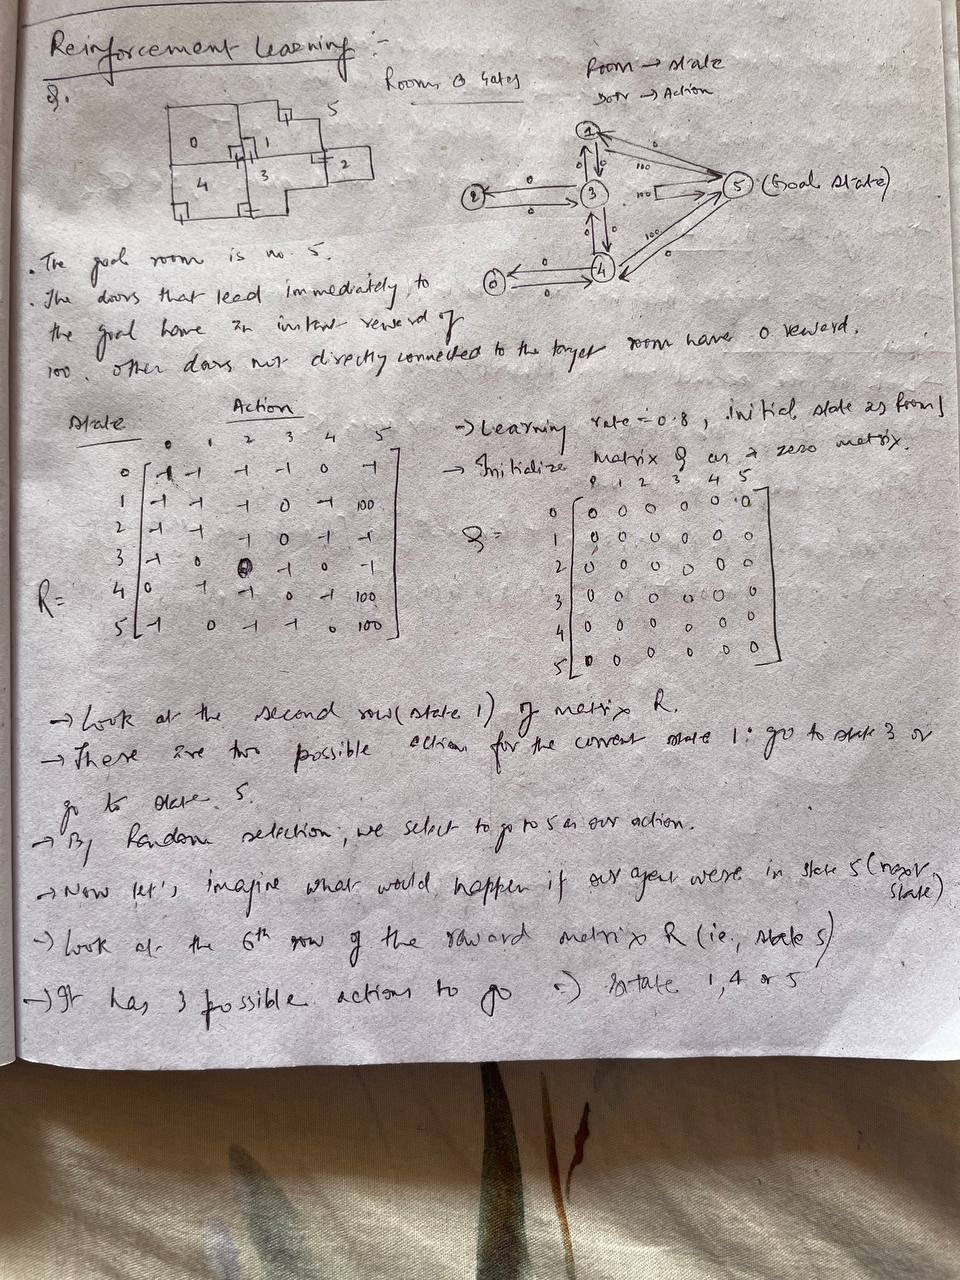 Reinforcement Learning :-
Q.
Rooms & Gates
Room → State
Door → Action
5
0
1
2
4
3
1
0
100
0
0
2
0
3
0
100
5 (Goal State)
0
0
100
0
0
4
0
0
. The goal room is no. 5.
. The doors that lead immediately to
the goal have an instant reward of
100. Other doors not directly connected to the target room have 0 reward.
State
Action
0 1 2 3 4 5
0 -1 -1 -1 -1 0 -1
1 -1 -1 -1 0 -1 100
2 -1 -1 -1 0 -1 -1
3 -1 0 0 -1 0 -1
R= 4 0 -1 -1 0 -1 100
5 -1 0 -1 -1 0 100
→ Learning rate = 0.8, initial state as Room 1
→ Initialize matrix Q as a zero matrix.
0 1 2 3 4 5
0 0 0 0 0 0 0
Q = 1 0 0 0 0 0 0
2 0 0 0 0 0 0
3 0 0 0 0 0 0
4 0 0 0 0 0 0
5 0 0 0 0 0 0
→ Look at the second row (state 1) of matrix R.
→ There are two possible action for the current state 1: go to state 3 or
go to state 5.
→ By Random selection, we select to go to 5 as our action.
→ Now let's imagine what would happen if our agent were in state 5 (next
state)
→ Look at the 6th row of the reward matrix R (i.e., state 5)
→ It has 3 possible actions to go => state 1, 4 or 5